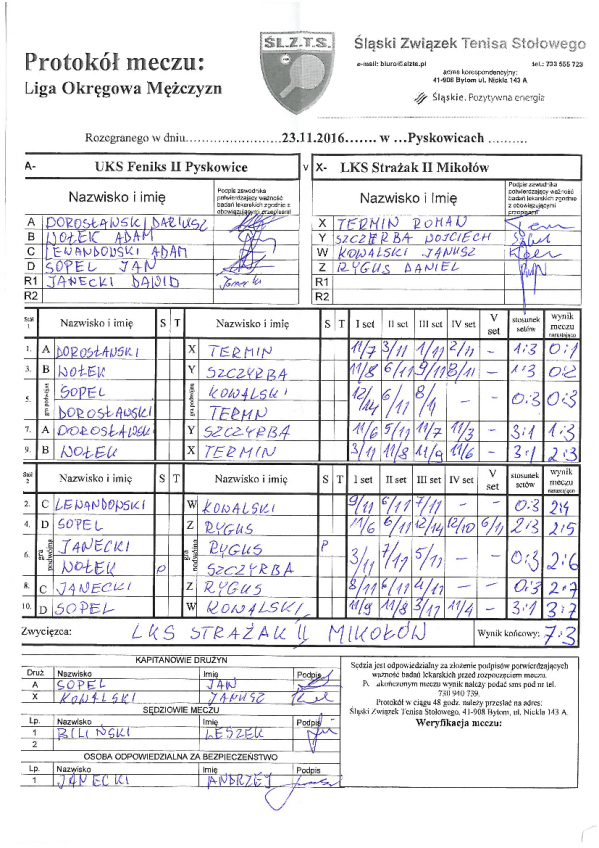 ŚL.Z.T.S.
Protokół meczu:
Liga Okręgowa Mężczyzn
Śląski Związek Tenisa Stołowego
e-mail: biuro@slzts.pl tel.: 733 555 723
adres korespondencyjny:
41-908 Bytom ul. Nickla 143 A
Śląskie. Pozytywna energia
Rozegranego w dniu……………………23.11.2016……. w …Pyskowicach ……….
A- UKS Feniks II Pyskowice v X- LKS Strażak II Mikołów
Nazwisko i imię Podpis zawodnika potwierdzający ważność badań lekarskich zgodnie z obowiązującymi przepisami Nazwisko i Imię Podpis zawodnika potwierdzający ważność badań lekarskich zgodnie z obowiązującymi przepisami
A DOROSŁAWSKI DARIUSZ X TERMIN ROMAN
B WOŁEK ADAM Y SZCZYRBA WOJCIECH
C LEWANDOWSKI ADAM W KOWALSKI JANUSZ
D SOPEL JAN Z RYGUS DANIEL
R1 JANECKI DAWID R1
R2 R2
Stół 1 Nazwisko i imię S T Nazwisko i imię S T I set II set III set IV set V set stosunek setów wynik meczu narastająco
1. A DOROSŁAWSKI X TERMIN 11/7 3/11 1/11 2/11 - 1:3 0:1
3. B WOŁEK Y SZCZYRBA 11/8 6/11 9/11 8/11 - 1:3 0:2
5. gra podwójna SOPEL gra podwójna KOWALSKI 12/14 6/11 0:3 0:3
DOROSŁAWSKI TERMIN
7. A DOROSŁAWSKI Y SZCZYRBA 11/6 5/11 11/7 11/3 - 3:1 1:3
9. B WOŁEK X TERMIN 3/11 11/8 11/9 11/6 - 3:1 2:3
Stół 2 Nazwisko i imię S T Nazwisko i imię S T I set II set III set IV set V set stosunek setów wynik meczu narastająco
2. C LEWANDOWSKI W KOWALSKI 9/11 6/11 7/11 - - 0:3 2:4
4. D SOPEL Z RYGUS 11/6 6/11 12/14 12/10 6/11 2:3 2:5
6. gra podwójna JANECKI gra podwójna RYGUS P 3/11 7/11 5/11 - 0:3 2:6
WOŁEK P SZCZYRBA
8. C JANECKI Z RYGUS 8/11 6/11 4/11 - - 0:3 2:7
10. D SOPEL W KOWALSKI 11/9 11/8 3/11 11/4 - 3:1 3:7
Zwycięzca: LKS STRAŻAK II MIKOŁÓW Wynik końcowy: 7:3
KAPITANOWIE DRUŻYN
Druż Nazwisko Imię Podpis
A SOPEL JAN
X KOWALSKI JANUSZ
SĘDZIOWIE MECZU
Lp. Nazwisko Imię Podpis
1 BILIŃSKI LESZEK
2
OSOBA ODPOWIEDZIALNA ZA BEZPIECZEŃSTWO
Lp. Nazwisko Imię Podpis
1 JANECKI ANDRZEJ
Sędzia jest odpowiedzialny za złożenie podpisów potwierdzających
ważność badań lekarskich przed rozpoczęciem meczu.
Po zakończonym meczu wynik należy podać sms pod nr tel.
730 940 739.
Protokół w ciągu 48 godz. należy przesłać na adres:
Śląski Związek Tenisa Stołowego, 41-908 Bytom, ul. Nickla 143 A.
Weryfikacja meczu: